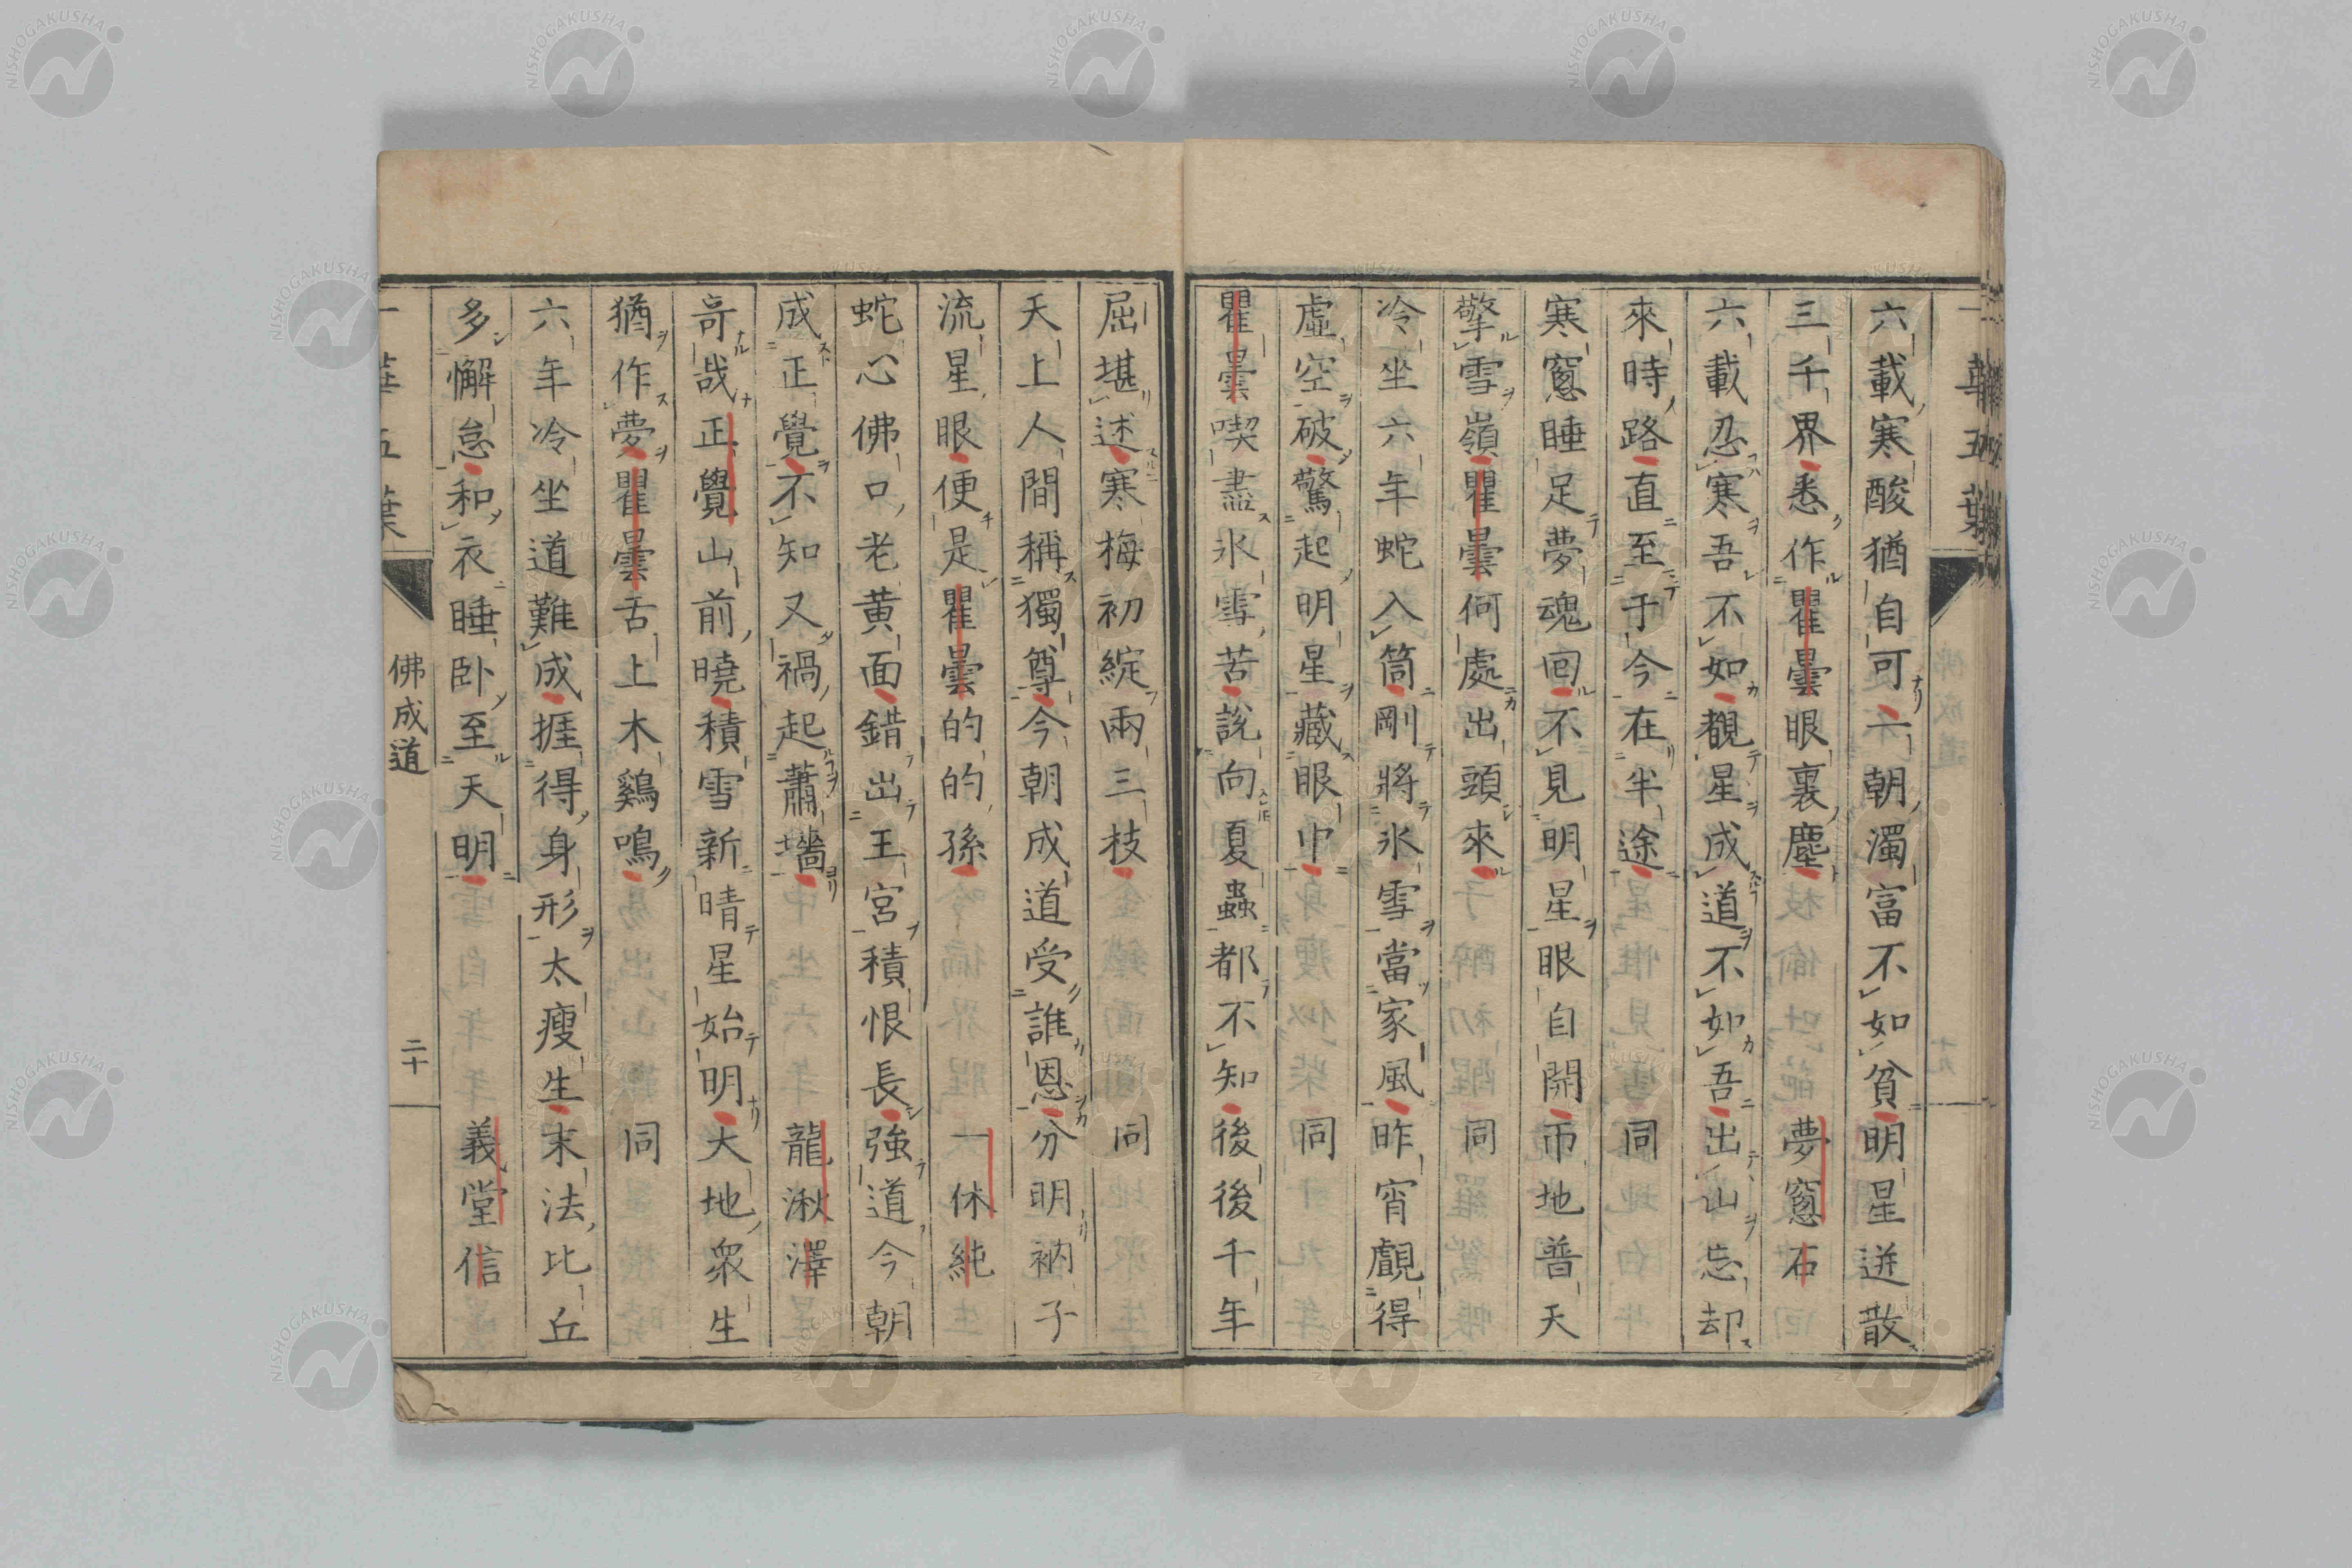 六載寒酸猶自可一朝濁富不如貧明星迸散
三千界悉作瞿曇眼裏塵 夢窓石
六載忍寒吾不如覩星成道不如吾出山忘却
來時路直至于今在半途 同
寒窓睡足夢魂回不見明星眼自開帀地普天
擎雪嶺瞿曇何處出頭來 同
冷坐六年蛇入筒剛將氷雪當家風昨宵覰得
虛空破驚起明星藏眼中 同
瞿曇喫盡氷雪苦說向夏蟲都不知後後千年
屈堪述寒梅初綻兩三枝 同
天上人間稱獨尊今朝成道受誰恩分明衲子
流星眼便是瞿曇的的孫 一休純
蛇心佛口老黄面錯出王宮積恨長強道今朝
成正覺不知又禍起蕭墻 龍湫澤
奇哉正覺山前曉積雪新晴星始明大地衆生
猶作夢瞿曇舌上木鷄鳴 同
六年冷坐道難成捱得身形太瘦生末法比丘
多懈怠和衣睡卧至天明 義堂信
一華五葉 佛成道 二十
NISHOGAKUSHA